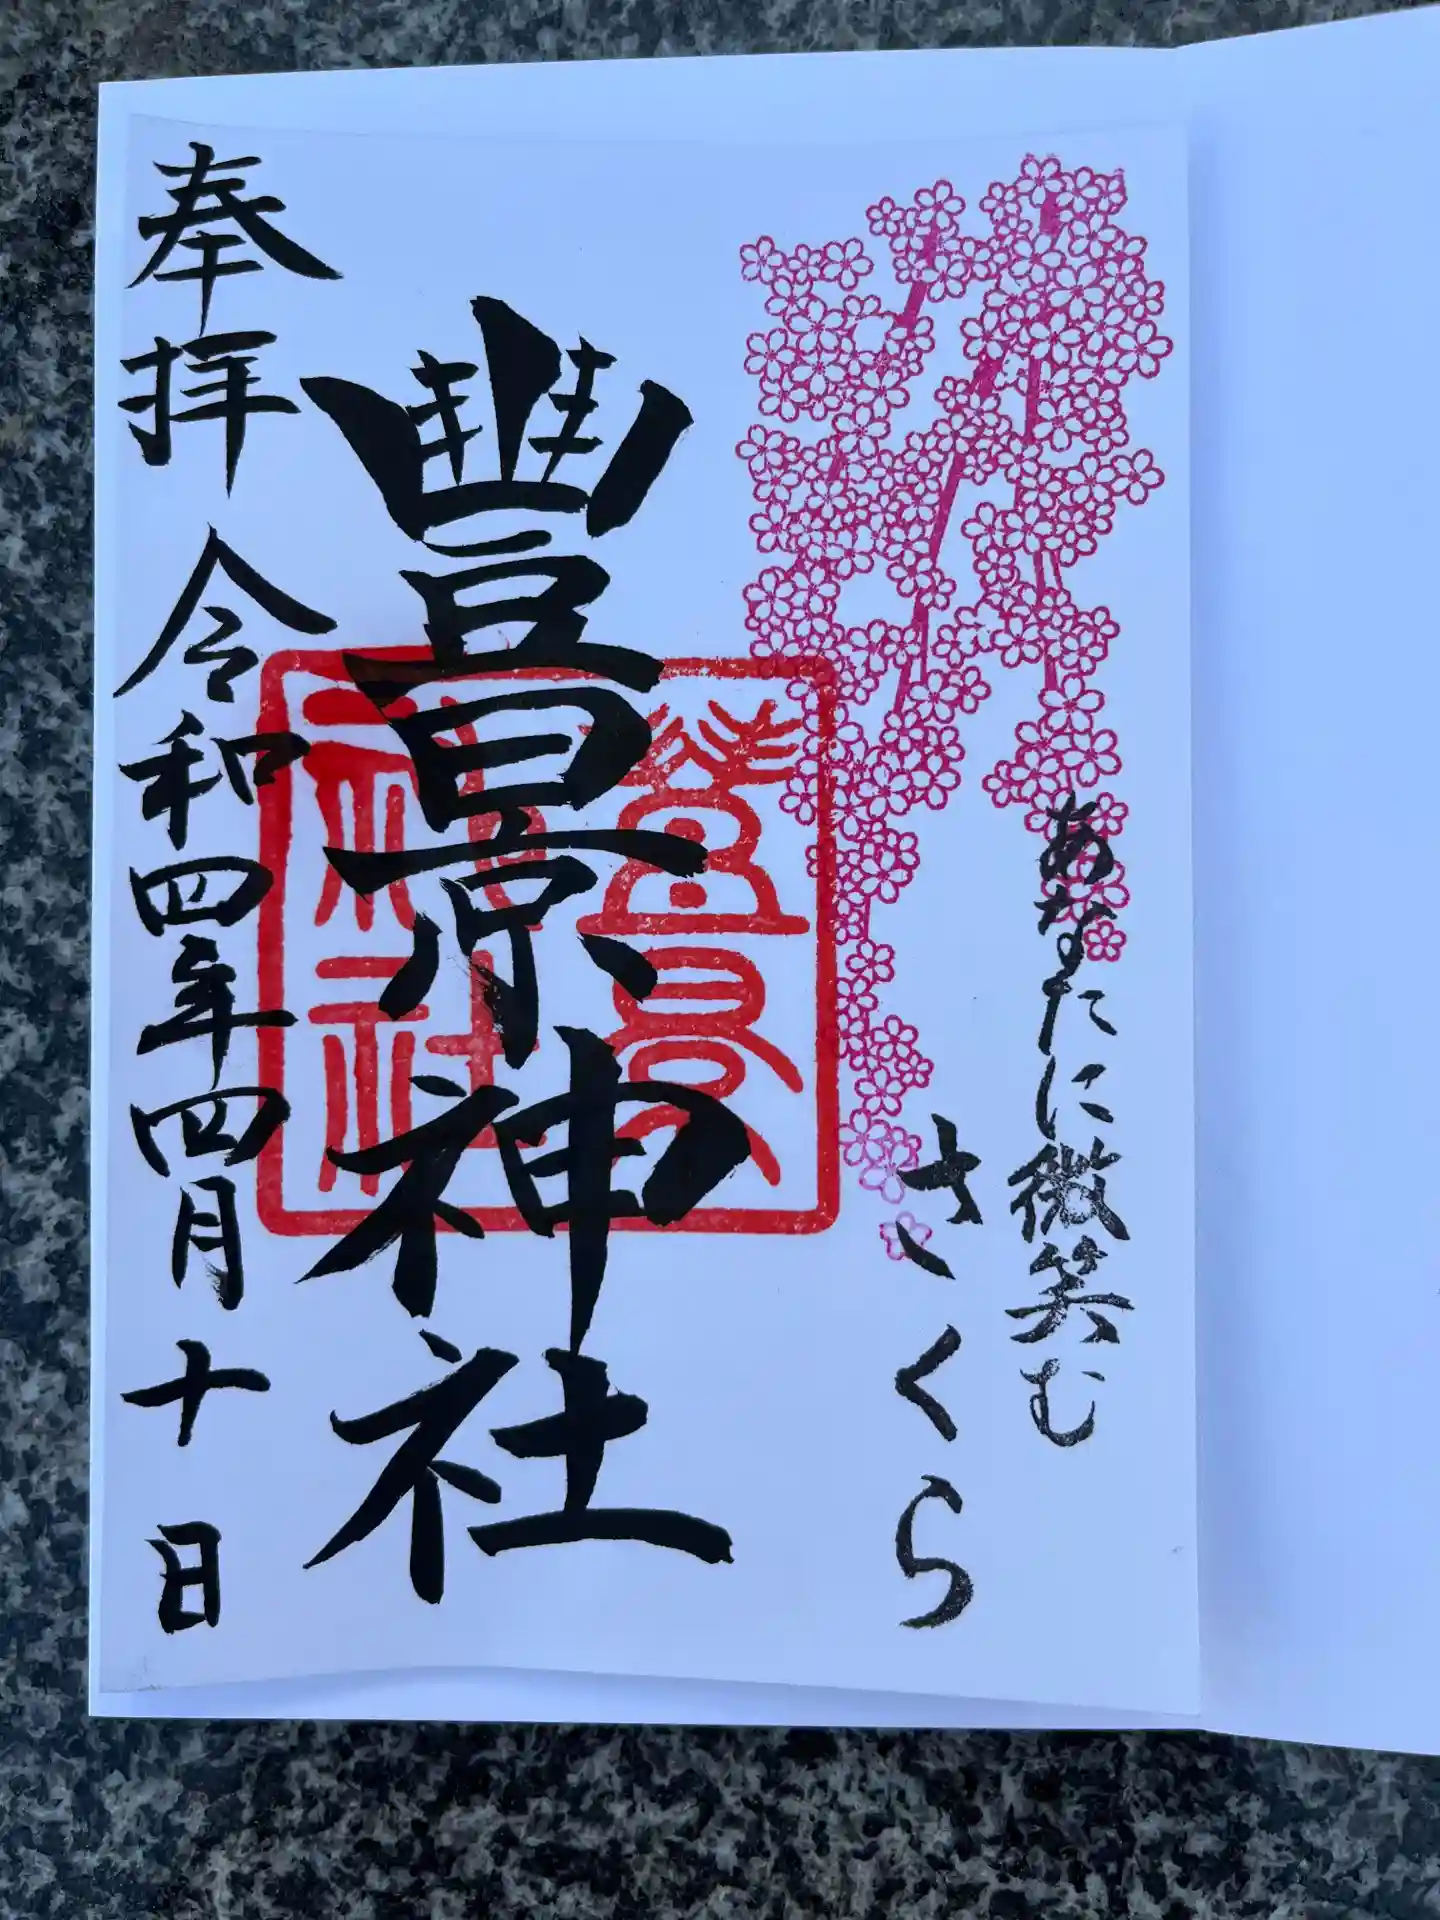 あなたに微笑む
さくら
豊景神社
奉拝 令和四年四月十日
豊景
神社